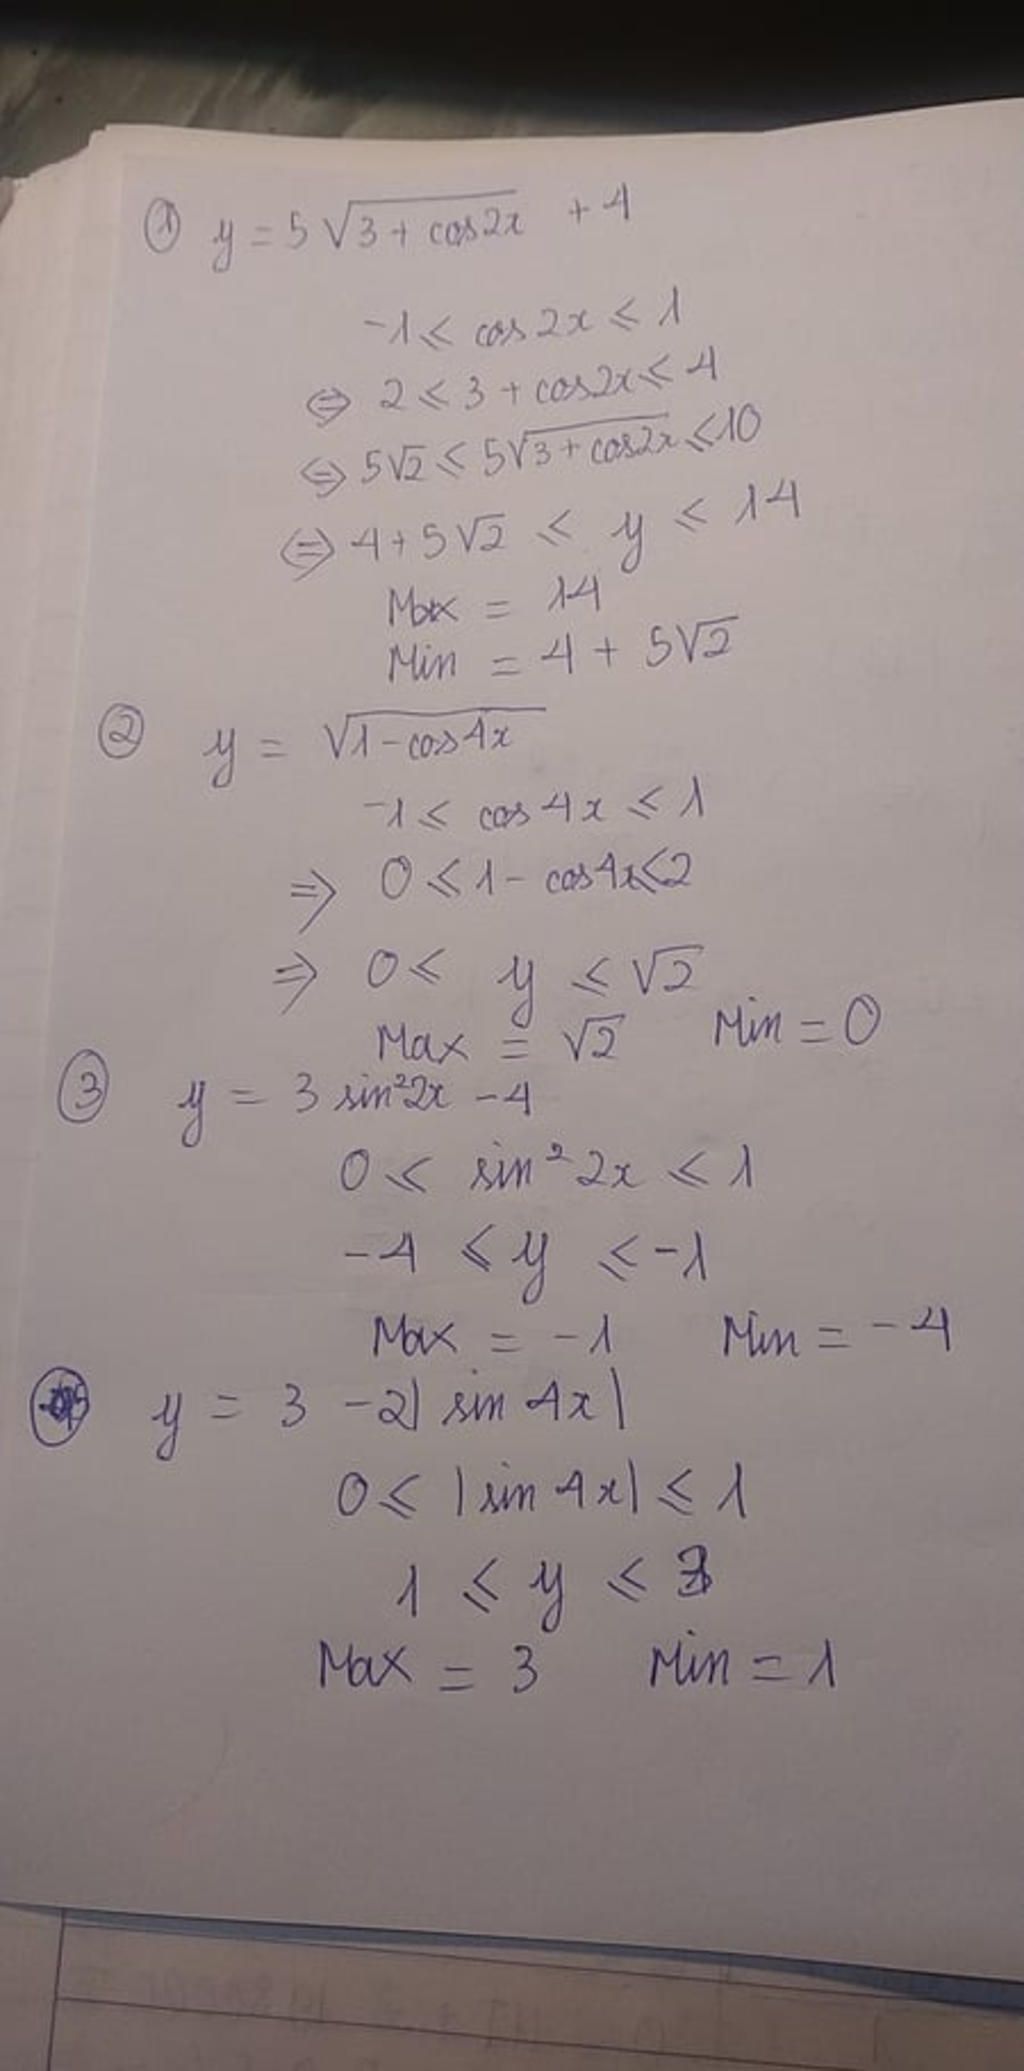 ① y = 5√(3 + cos2x) + 4
-1 ≤ cos 2x ≤ 1
⇔ 2 ≤ 3 + cos2x ≤ 4
⇔ 5√2 ≤ 5√(3 + cos2x) ≤ 10
⇔ 4 + 5√2 ≤ y ≤ 14
Max = 14
Min = 4 + 5√2
② y = √(1 - cos4x)
-1 ≤ cos 4x ≤ 1
⇒ 0 ≤ 1 - cos4x ≤ 2
⇒ 0 ≤ y ≤ √2
Max = √2 Min = 0
③ y = 3 sin²2x - 4
0 ≤ sin² 2x ≤ 1
-4 ≤ y ≤ -1
Max = -1 Min = -4
y = 3 - 2|sin 4x|
0 ≤ |sin 4x| ≤ 1
1 ≤ y ≤ 3
Max = 3 Min = 1